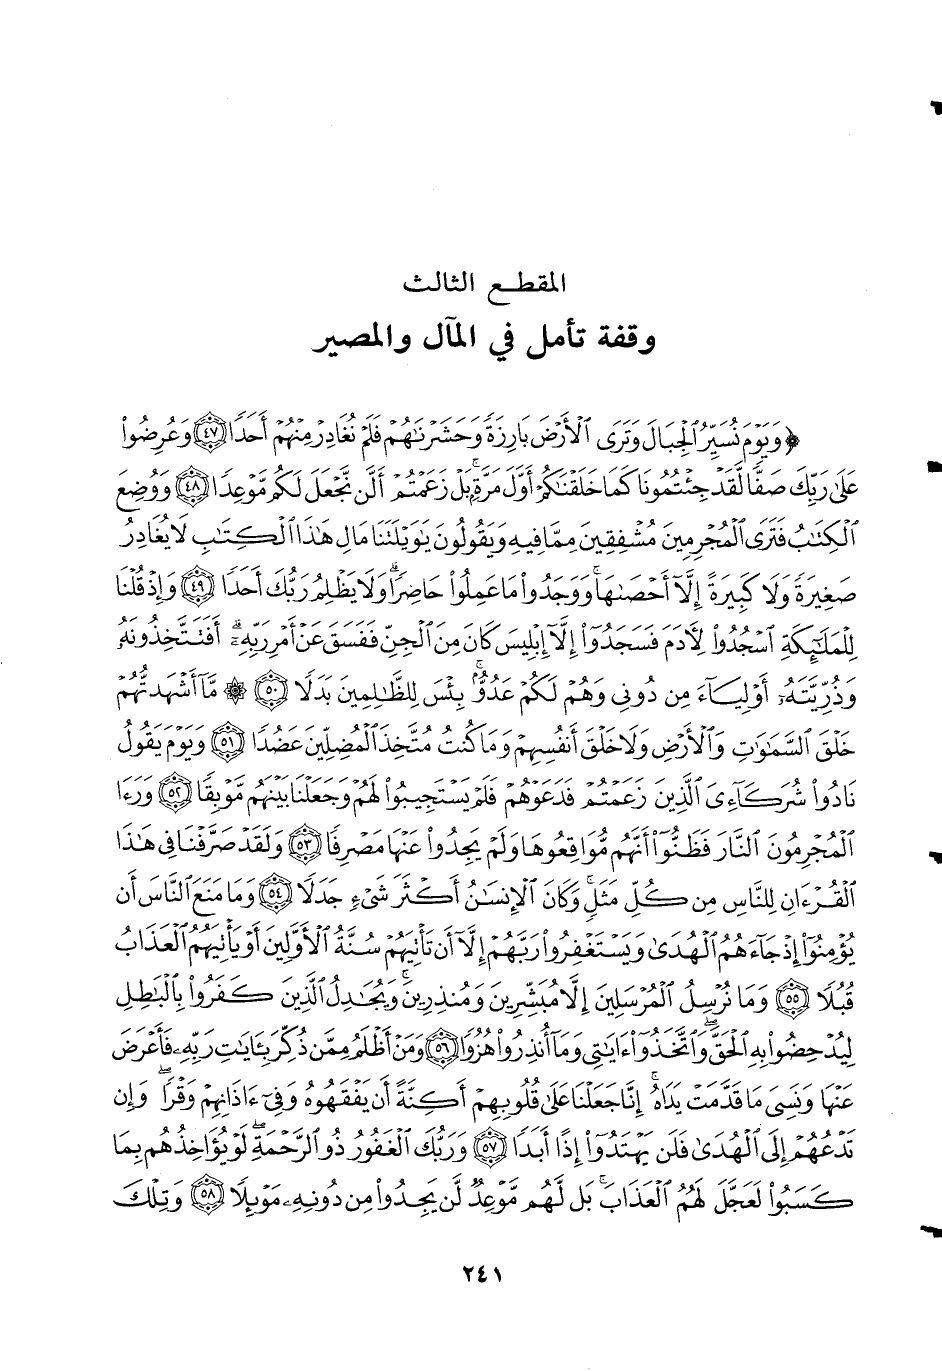 المقطع الثالث
وقفة تأمل في المآل والمصير
﴿ وَيَوْمَ نُسَيِّرُ ٱلْجِبَالَ وَتَرَى ٱلْأَرْضَ بَارِزَةً وَحَشَرْنَٰهُمْ فَلَمْ نُغَادِرْ مِنْهُمْ أَحَدًا ﴿٤٧﴾ وَعُرِضُوا۟
عَلَىٰ رَبِّكَ صَفًّا لَّقَدْ جِئْتُمُونَا كَمَا خَلَقْنَٰكُمْ أَوَّلَ مَرَّةٍۭ ۚ بَلْ زَعَمْتُمْ أَلَّن نَّجْعَلَ لَكُم مَّوْعِدًا ﴿٤٨﴾ وَوُضِعَ
ٱلْكِتَٰبُ فَتَرَى ٱلْمُجْرِمِينَ مُشْفِقِينَ مِمَّا فِيهِ وَيَقُولُونَ يَٰوَيْلَتَنَا مَالِ هَٰذَا ٱلْكِتَٰبِ لَا يُغَادِرُ
صَغِيرَةً وَلَا كَبِيرَةً إِلَّآ أَحْصَىٰهَا ۚ وَوَجَدُوا۟ مَا عَمِلُوا۟ حَاضِرًا ۗ وَلَا يَظْلِمُ رَبُّكَ أَحَدًا ﴿٤٩﴾ وَإِذْ قُلْنَا
لِلْمَلَٰٓئِكَةِ ٱسْجُدُوا۟ لِـَٔادَمَ فَسَجَدُوٓا۟ إِلَّآ إِبْلِيسَ كَانَ مِنَ ٱلْجِنِّ فَفَسَقَ عَنْ أَمْرِ رَبِّهِۦٓ ۗ أَفَتَتَّخِذُونَهُۥ
وَذُرِّيَّتَهُۥٓ أَوْلِيَآءَ مِن دُونِى وَهُمْ لَكُمْ عَدُوٌّۢ ۚ بِئْسَ لِلظَّٰلِمِينَ بَدَلًا ﴿٥٠﴾ ۞ مَّآ أَشْهَدتُّهُمْ
خَلْقَ ٱلسَّمَٰوَٰتِ وَٱلْأَرْضِ وَلَا خَلْقَ أَنفُسِهِمْ وَمَا كُنتُ مُتَّخِذَ ٱلْمُضِلِّينَ عَضُدًا ﴿٥١﴾ وَيَوْمَ يَقُولُ
نَادُوا۟ شُرَكَآءِىَ ٱلَّذِينَ زَعَمْتُمْ فَدَعَوْهُمْ فَلَمْ يَسْتَجِيبُوا۟ لَهُمْ وَجَعَلْنَا بَيْنَهُم مَّوْبِقًا ﴿٥٢﴾ وَرَءَا
ٱلْمُجْرِمُونَ ٱلنَّارَ فَظَنُّوٓا۟ أَنَّهُم مُّوَاقِعُوهَا وَلَمْ يَجِدُوا۟ عَنْهَا مَصْرِفًا ﴿٥٣﴾ وَلَقَدْ صَرَّفْنَا فِى هَٰذَا
ٱلْقُرْءَانِ لِلنَّاسِ مِن كُلِّ مَثَلٍ ۚ وَكَانَ ٱلْإِنسَٰنُ أَكْثَرَ شَىْءٍ جَدَلًا ﴿٥٤﴾ وَمَا مَنَعَ ٱلنَّاسَ أَن
يُؤْمِنُوٓا۟ إِذْ جَآءَهُمُ ٱلْهُدَىٰ وَيَسْتَغْفِرُوا۟ رَبَّهُمْ إِلَّآ أَن تَأْتِيَهُمْ سُنَّةُ ٱلْأَوَّلِينَ أَوْ يَأْتِيَهُمُ ٱلْعَذَابُ
قُبُلًا ﴿٥٥﴾ وَمَا نُرْسِلُ ٱلْمُرْسَلِينَ إِلَّا مُبَشِّرِينَ وَمُنذِرِينَ ۚ وَيُجَٰدِلُ ٱلَّذِينَ كَفَرُوا۟ بِٱلْبَٰطِلِ
لِيُدْحِضُوا۟ بِهِ ٱلْحَقَّ ۖ وَٱتَّخَذُوٓا۟ ءَايَٰتِى وَمَآ أُنذِرُوا۟ هُزُوًا ﴿٥٦﴾ وَمَنْ أَظْلَمُ مِمَّن ذُكِّرَ بِـَٔايَٰتِ رَبِّهِۦ فَأَعْرَضَ
عَنْهَا وَنَسِىَ مَا قَدَّمَتْ يَدَاهُ ۚ إِنَّا جَعَلْنَا عَلَىٰ قُلُوبِهِمْ أَكِنَّةً أَن يَفْقَهُوهُ وَفِىٓ ءَاذَانِهِمْ وَقْرًا ۖ وَإِن
تَدْعُهُمْ إِلَى ٱلْهُدَىٰ فَلَن يَهْتَدُوٓا۟ إِذًا أَبَدًا ﴿٥٧﴾ وَرَبُّكَ ٱلْغَفُورُ ذُو ٱلرَّحْمَةِ ۖ لَوْ يُؤَاخِذُهُم بِمَا
كَسَبُوا۟ لَعَجَّلَ لَهُمُ ٱلْعَذَابَ ۚ بَل لَّهُم مَّوْعِدٌ لَّن يَجِدُوا۟ مِن دُونِهِۦ مَوْئِلًا ﴿٥٨﴾ وَتِلْكَ
٢٤١